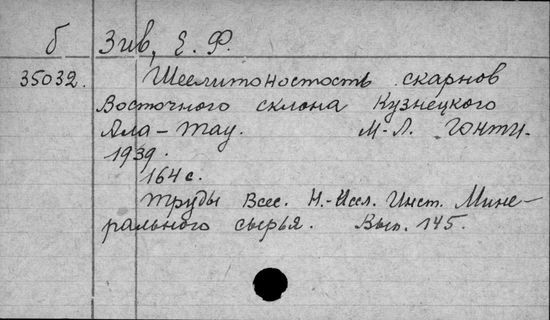 б Зив, Е. Ф.
35032. Шеелитоностость скарнов
Восточного склона Кузнецкого
Ала-тау. М-Л. Гонти.
1939.
164 с.
Труды Всес. Н.-Иссл. Инст. Мине-
рального сырья. Вып. 145.